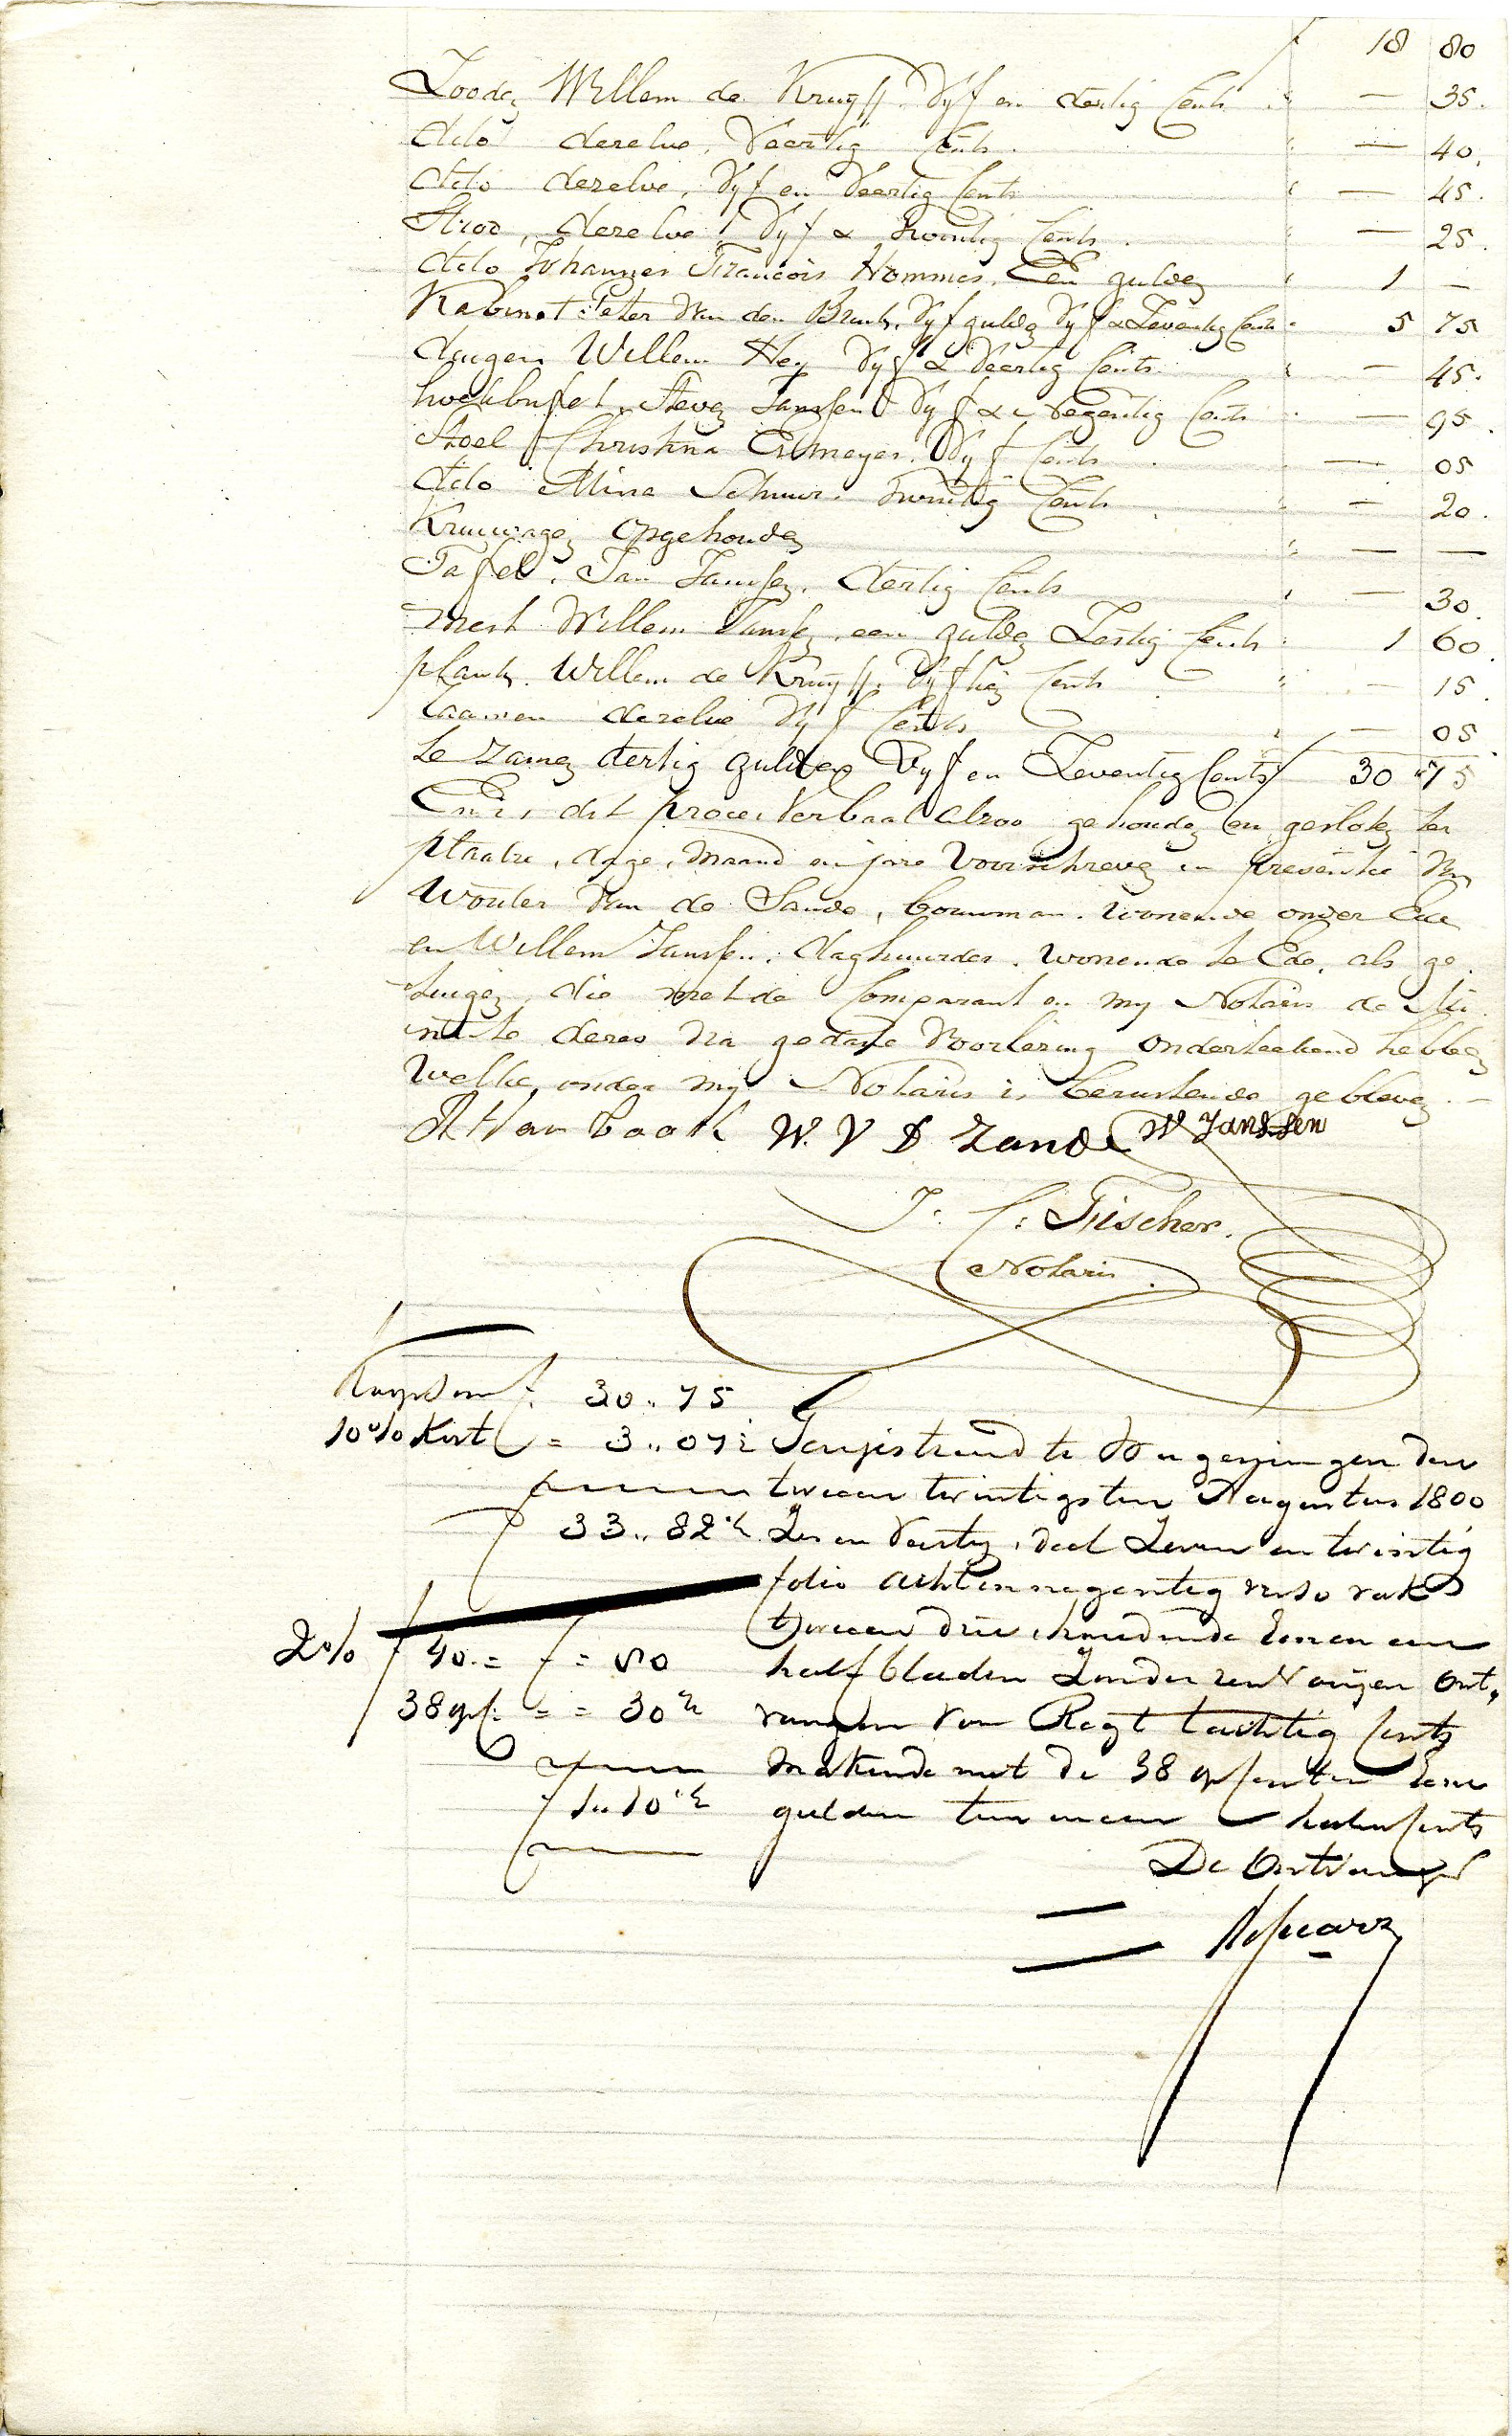 ƒ 18 80
Zooden Willem de Kruyff. Vyf en dertig Cents " — 35.
dito dezelve, Veertig Cents. " — 40.
dito dezelve, Vyf en Veertig Cents " — 45.
Stroo, dezelve Vyf & Twintig Cents. " — 25.
dito Johannes Francois Hommes. Een gulden " 1 —
Kabinet Peter van den Brink, Vyf gulden Vyf & Zeventig Cents " 5 75
duigen Willem Hey Vyf & Veertig Cents " — 45.
hoekbufet, Steven Janssen Vyf & Negentig Cents " — 95.
Stoel Christina Ermeyer. Vyf Cents " — 05
dito Mina Schuur. Twintig Cents " — 20.
Kruiwagen opgehouden " — —
Tafel. Jan Janssen. dertig Cents " — 30.
mest Willem Janssen, een gulden Zestig Cents " 1 60.
plank. Willem de Kruyff. Vyftien Cents " — 15.
dezelve Vyf Cents " — 05.
te zamen dertig gulden Vyf en Zeventig Cents ƒ 30 " 75
En is dit proces Verbaal alzoo gehouden en gesloten ter
plaatse, dage, maand en jare Voorschreven in presentie van
Wouter van de Sande, bouwman. wonende onder Ede
en Willem Janssen. daghuurder. wonende te Ede, als ge-
tuigen, die met de Comparant en my Notaris de Mi-
nute dezes na gedane Voorlezing onderteekend hebben
Welke onder my Notaris is berustende gebleven. —
W. V D Zande W Janssen
J. C: Fischer.
Notaris.
Koopsom ƒ 30.. 75
10% Kost = 3.. 07½ Geregistreerd te Wageningen den
tweeen twintigsten Augustus 1800
ƒ 33.. 82½ Zes en Veertig, deel Zeven en twintig
folio achtennegentig verso vak
tweeen drie, houdende Eenen een
2% ƒ 40.= ƒ = 80 half bladen Zonder renvoijen Ont-
38 opc: = = 30½ vangen voor Regt tachtig Cents
makende met de 38 opcenten Eene
ƒ 1.. 10½ gulden tien eneen halve Cents
De Ontvanger